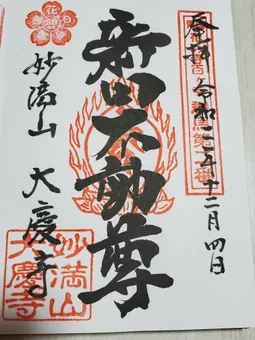 奉拝
令和二年十二月四日
不動尊
妙満山 大慶寺
妙満山
大慶寺
花